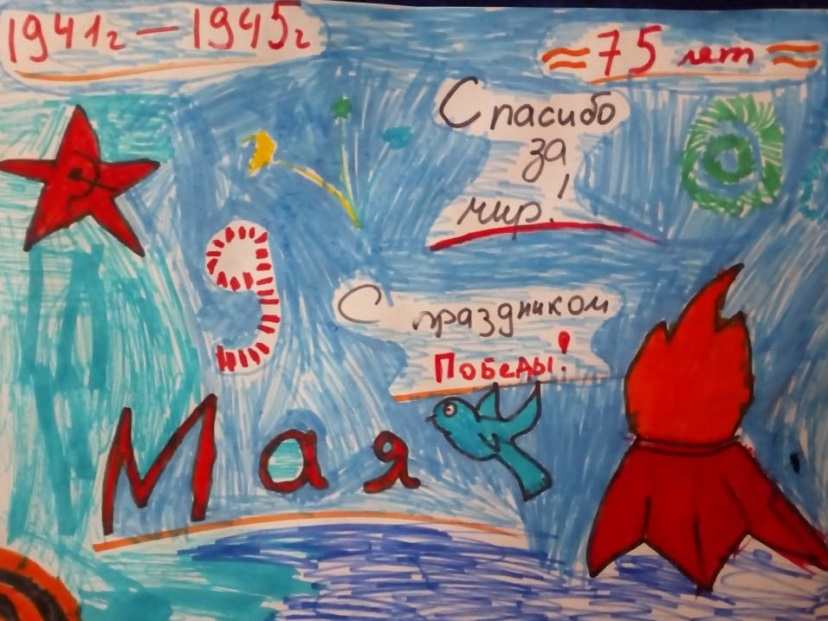 1941г — 1945г
≈ 75 лет ≈
Спасибо
за
мир!
9
С праздником
Победы!
Мая